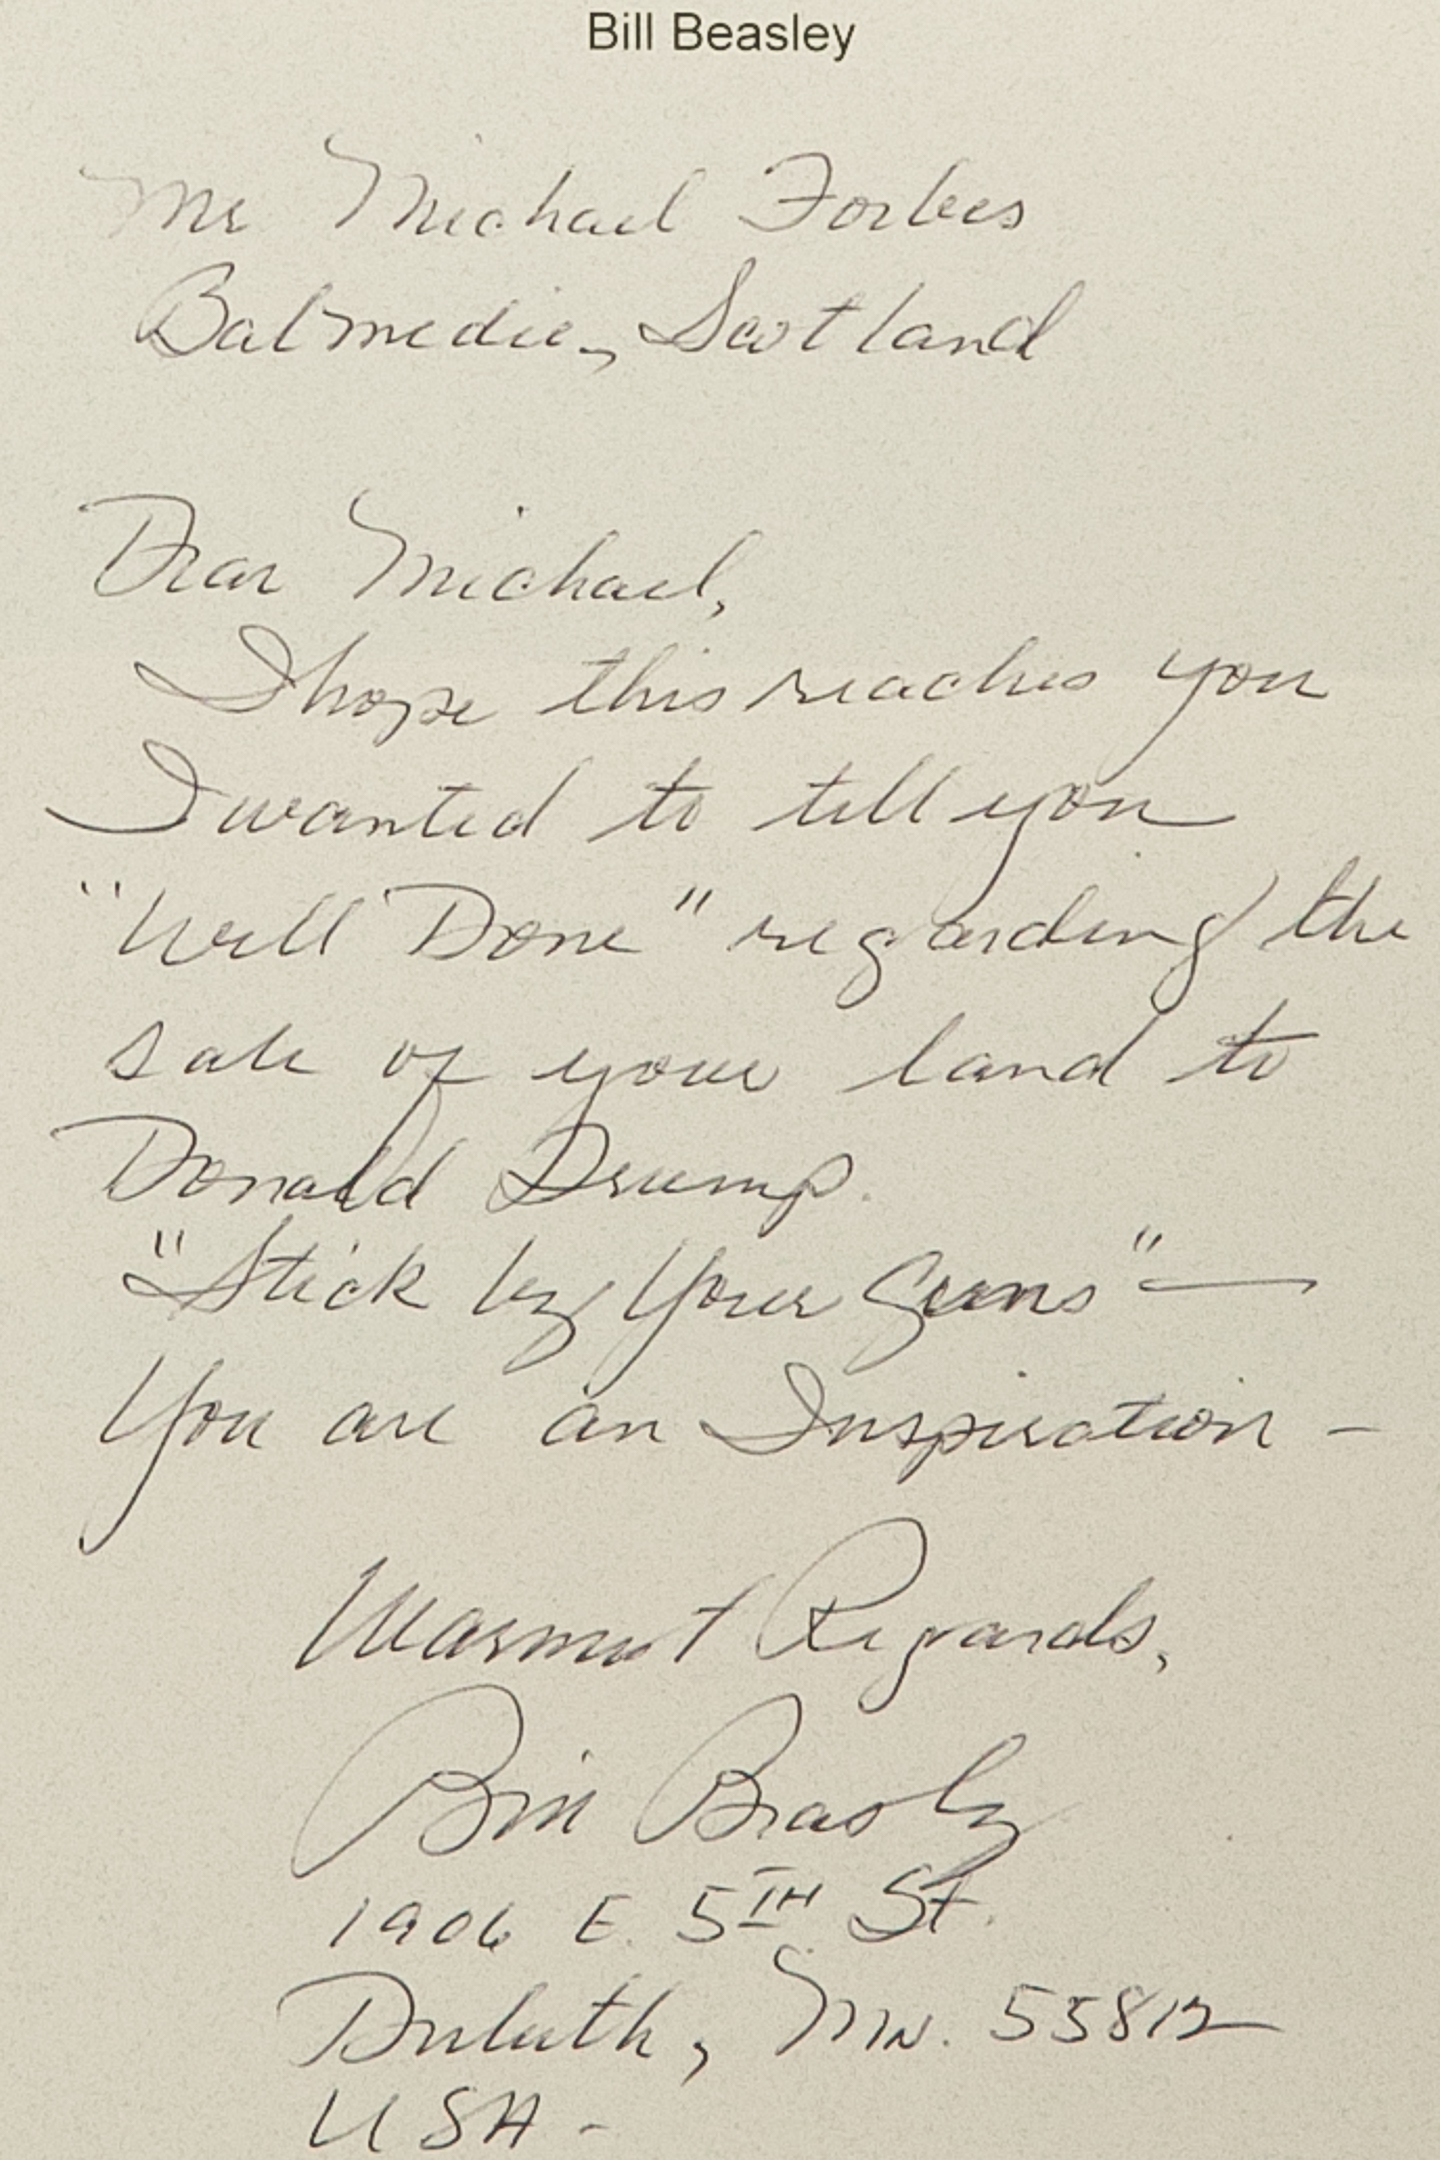 Bill Beasley
Mr Michael Forbes
Balmedie, Scotland
Dear Michael,
I hope this reaches you
I wanted to tell you
"Well Done" regarding the
sale of your land to
Donald Drump.
"Stick by Your Guns" —
You are an Inspiration -
Warmest Regards,
Bill Beasley
1906 E. 5TH St.
Duluth, Mn. 55812
USA -